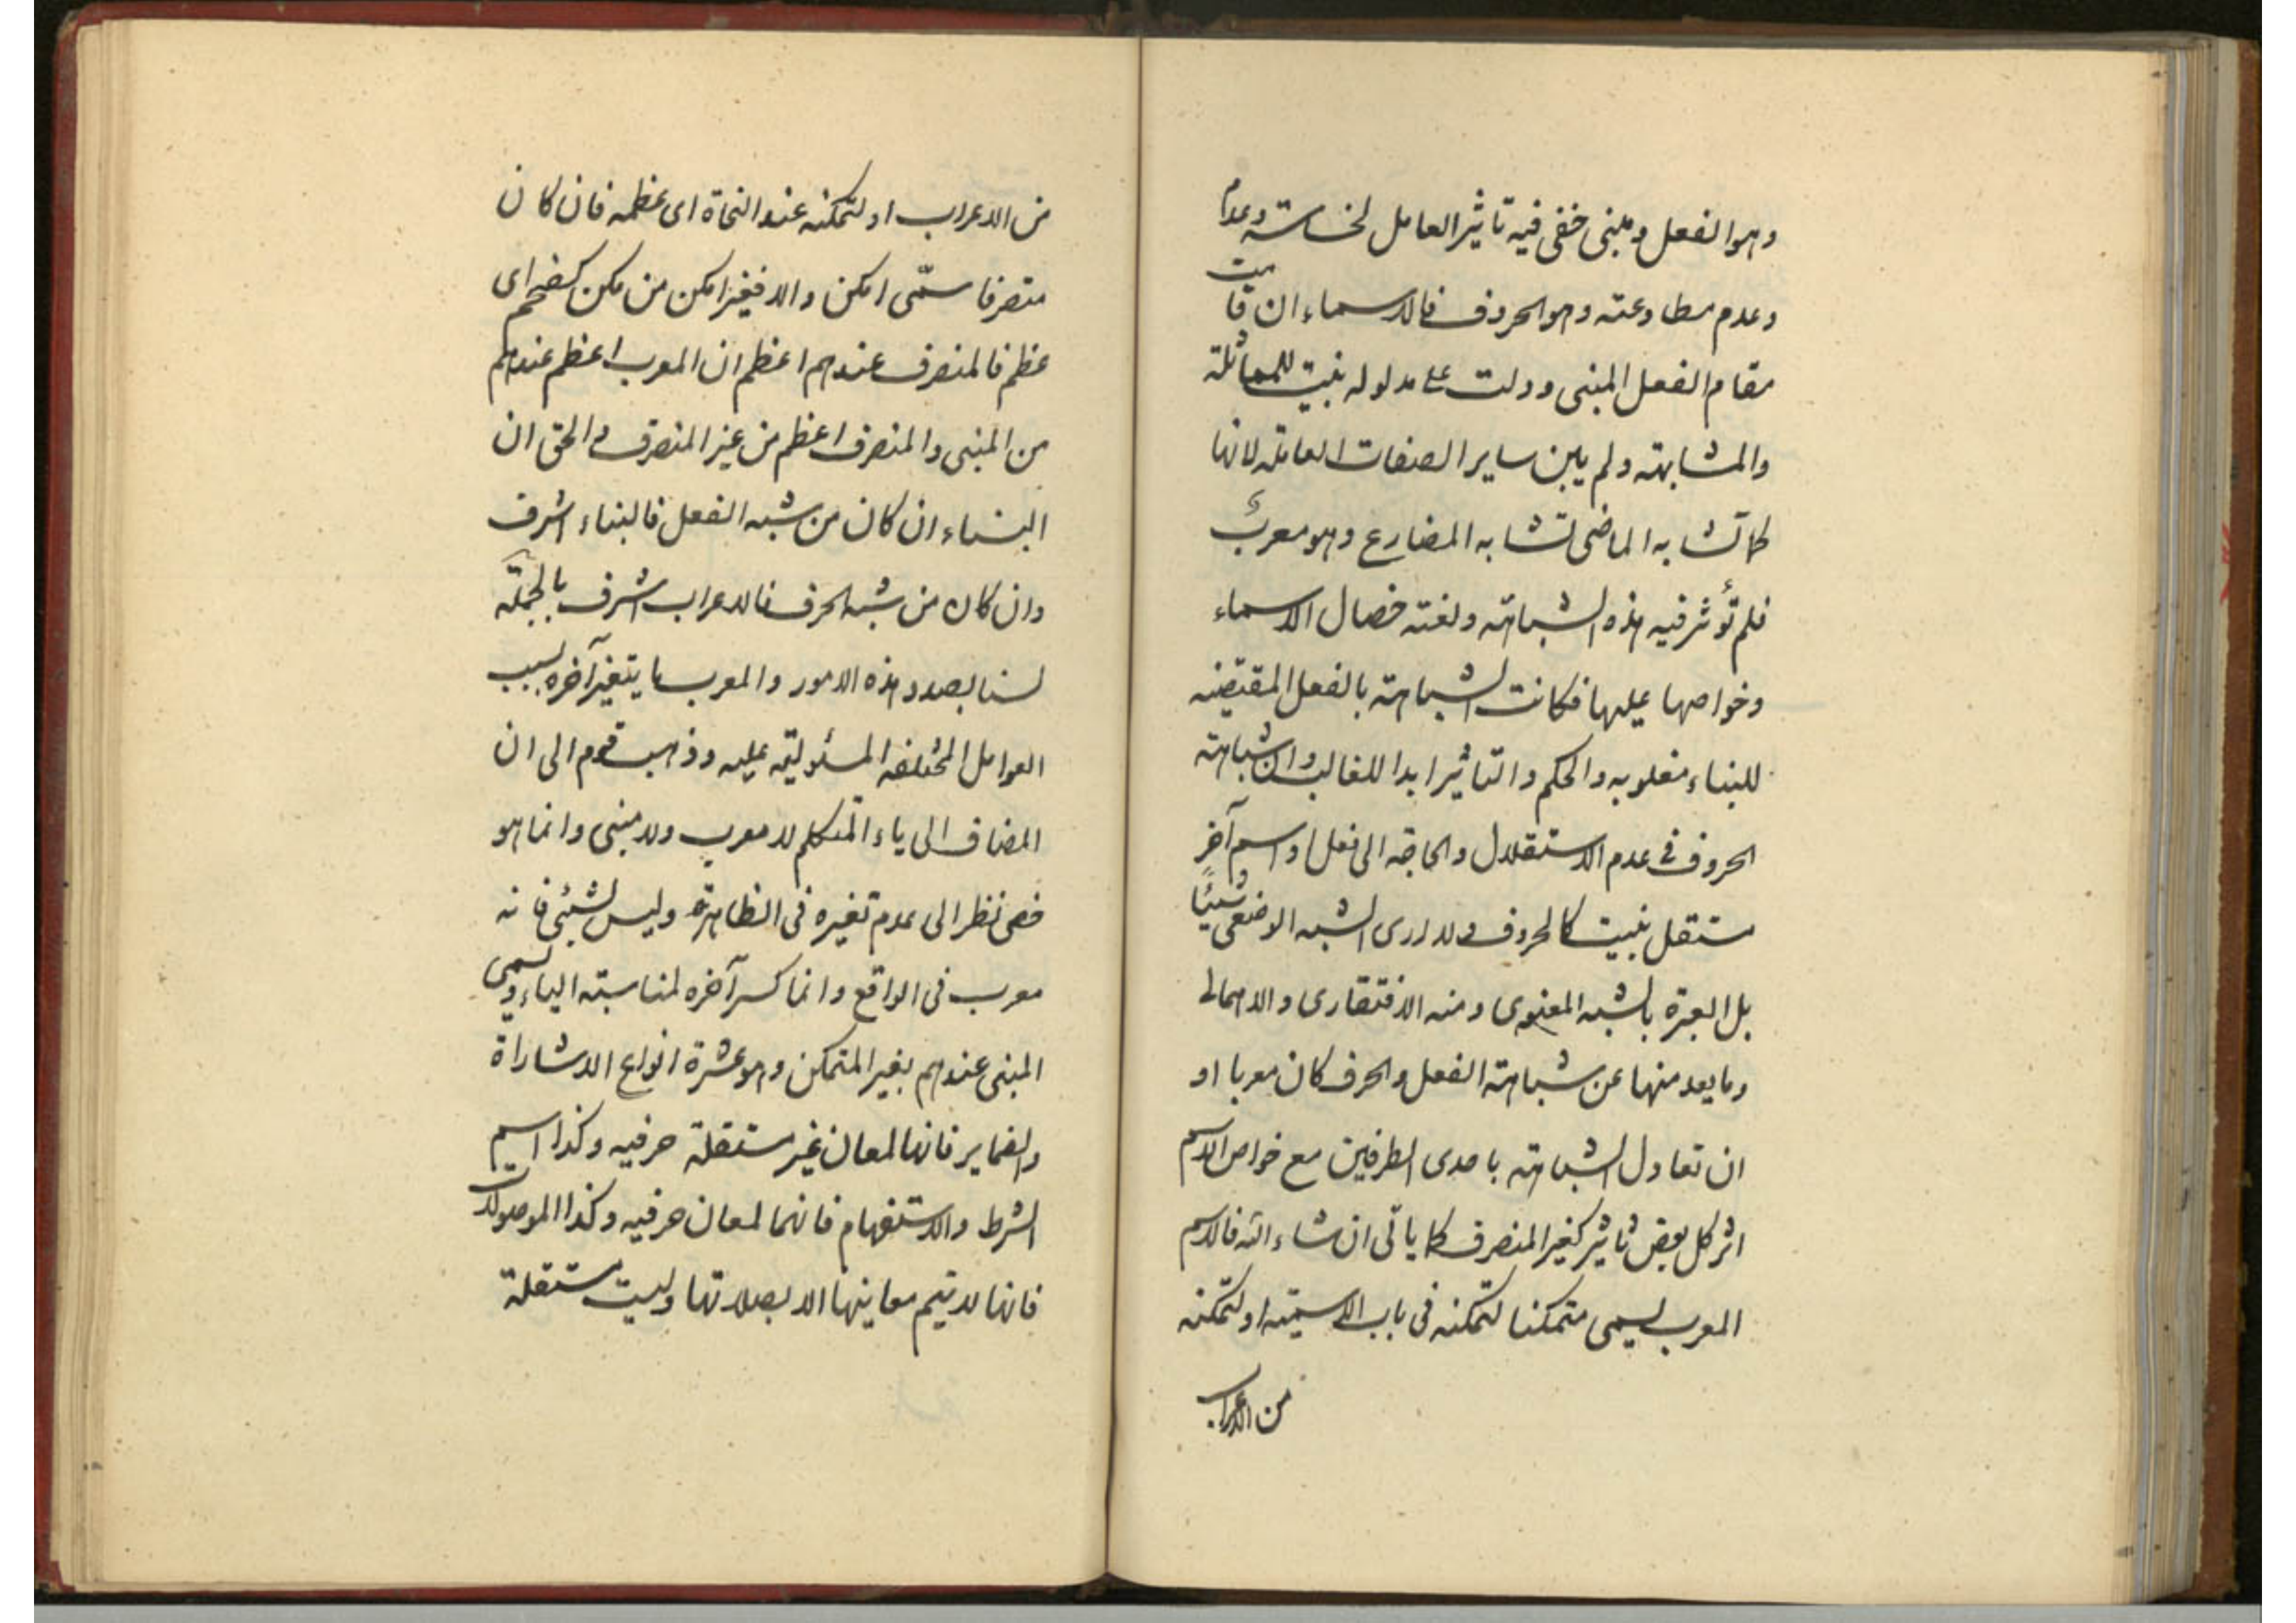 وهو الفعل ومبنی خفی فیه تاثیر العامل لخساسته وعدم
وعدم مطاوعته وهو الحروف فالاسماء ان قامت
مقام الفعل المبنی ودلت علی مدلوله بنیت للمماثلة
والمشابهته ولم یبن سایر الصفات العامله لانها
کما تشابه الماضی تشابه المضارع وهو معرب
فلم تؤثر فیه هذه الشباهته ولغته خصال الاسماء
وخواصها علیها فکانت الشباهته بالفعل المقتضیه
للبناء مغلوبه والحکم والتاثیر ابدا للغالب وان شباهته
الحروف فی عدم الاستقلال والحاجه الی فعل او اسم آخر
مستقل بنیت کالحروف ولا اری الشبه الوضعی شیئا
بل العبرة بالشبه المعنوی ومنه الافتقاری والاهمالی
وما بعد منها عن شباهته الفعل والحرف کان معربا او
ان تعادل الشباهته باحدی الطرفین مع خواص الاسم
اثر کل بعض تاثیر کغیر المنصرف کما یاتی ان شاء الله فالاسم
المعرب یسمی متمکنا لتمکنه فی باب الاسمیته او لتمکنه
من الاعراب
من الاعراب او لتمکنه عند النحاة ای عظمه فان کان
متصرفا سمّی امکن والا فغیر امکن من مکن کضخم ای
عظم فالمنصرف عندهم اعظم ان المعرب اعظم عندهم
من المبنی والمنصرف اعظم من غیر المنصرف والحق ان
البناء ان کان من شبه الفعل فالبناء اشرف
وان کان من شبه الحرف فالاعراب اشرف بالجملة
لسنا بصدد هذه الامور والمعرب ما یتغیر آخره بسبب
العوامل المختلفه المسئولیته علیه وذهب قوم الی ان
المضاف الی یاء المتکلم لا معرب ولا مبنی وانما هو
خصی نظر الی عدم تغیره فی الظاهرة ولیس بشیئ فانه
معرب فی الواقع وانما کسر آخره لمناسبته الیاء ویسمی
المبنی عندهم بغیر المتمکن وهو عشرة انواع الاشاراة
والضمایر فانها لمعان غیر مستقلة حرفیه وکذا اسم
الشرط والاستفهام فانهما لمعان حرفیه وکذا الموصولات
فانها لا یتم معاینها الا بصلاتها ولیست مستقلة